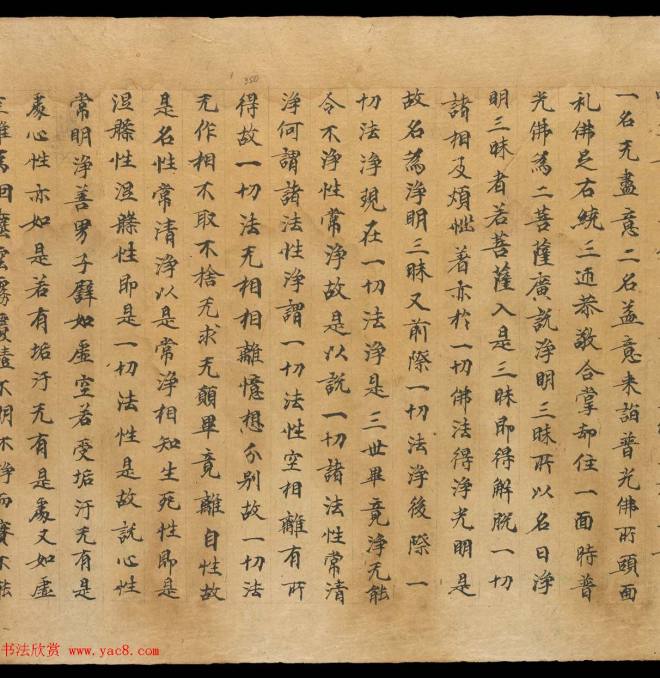 一名无盡意二名益意来詣普光佛所頭面
礼佛足右繞三迊恭敬合掌却住一面時普
光佛為二菩薩廣説淨明三昧所以名曰淨
明三昧者若菩薩入是三昧即得解脱一切
諸相及煩惱著亦於一切佛法得淨光明是
故名為淨明三昧又前際一切法淨後際一
切法淨現在一切法淨是三世畢竟淨无能
令不淨性常淨故是以説一切諸法性常清
淨何謂諸法性淨謂一切法性空相離有所
得故一切法无相相離憶想分别故一切法
无作相不取不捨无求无願畢竟離自性故
是名性常清淨以是常淨相知生死性即是
涅槃性涅槃性即是一切法性是故説心性
常明淨善男子譬如虚空若受垢汙无有是
處心性亦如是若有垢汙无有是處又如虚
空雖為烟塵雲霧覆翳不明不淨而實不能
350
书法欣赏 www.yac8.com